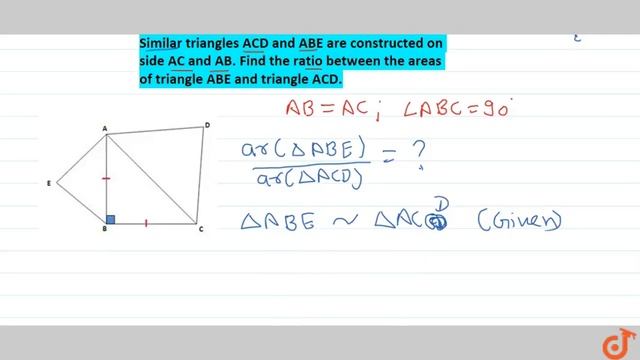 Similar triangles ACD and ABE are constructed on
side AC and AB. Find the ratio between the areas
of triangle ABE and triangle ACD.
AB = AC ; ∠ABC = 90°
ar(△ABE) / ar(△ACD) = ?
△ABE ~ △ACD (Given)
A
D
E
B
C